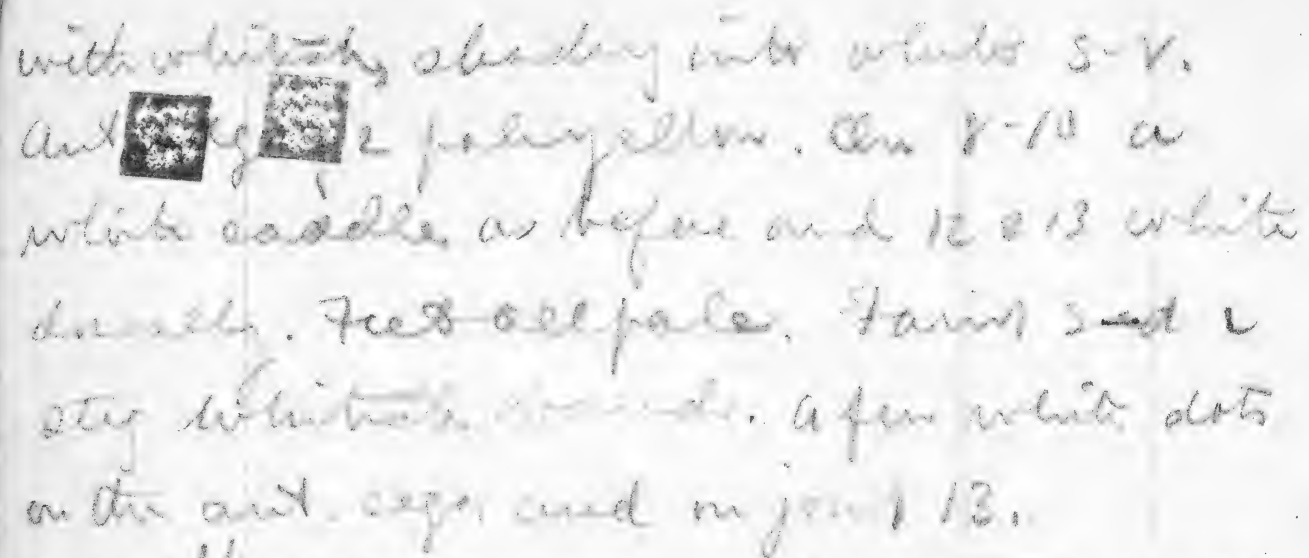 with whitish, shading into white 5-8.
Ant pale yellow. On 8-10 a
white saddle as before and 12 & 13 white
dorsally. Feet all pale. Faint sd &
stig whitish . A few white dots
on the ant. segs. and on joint 13.